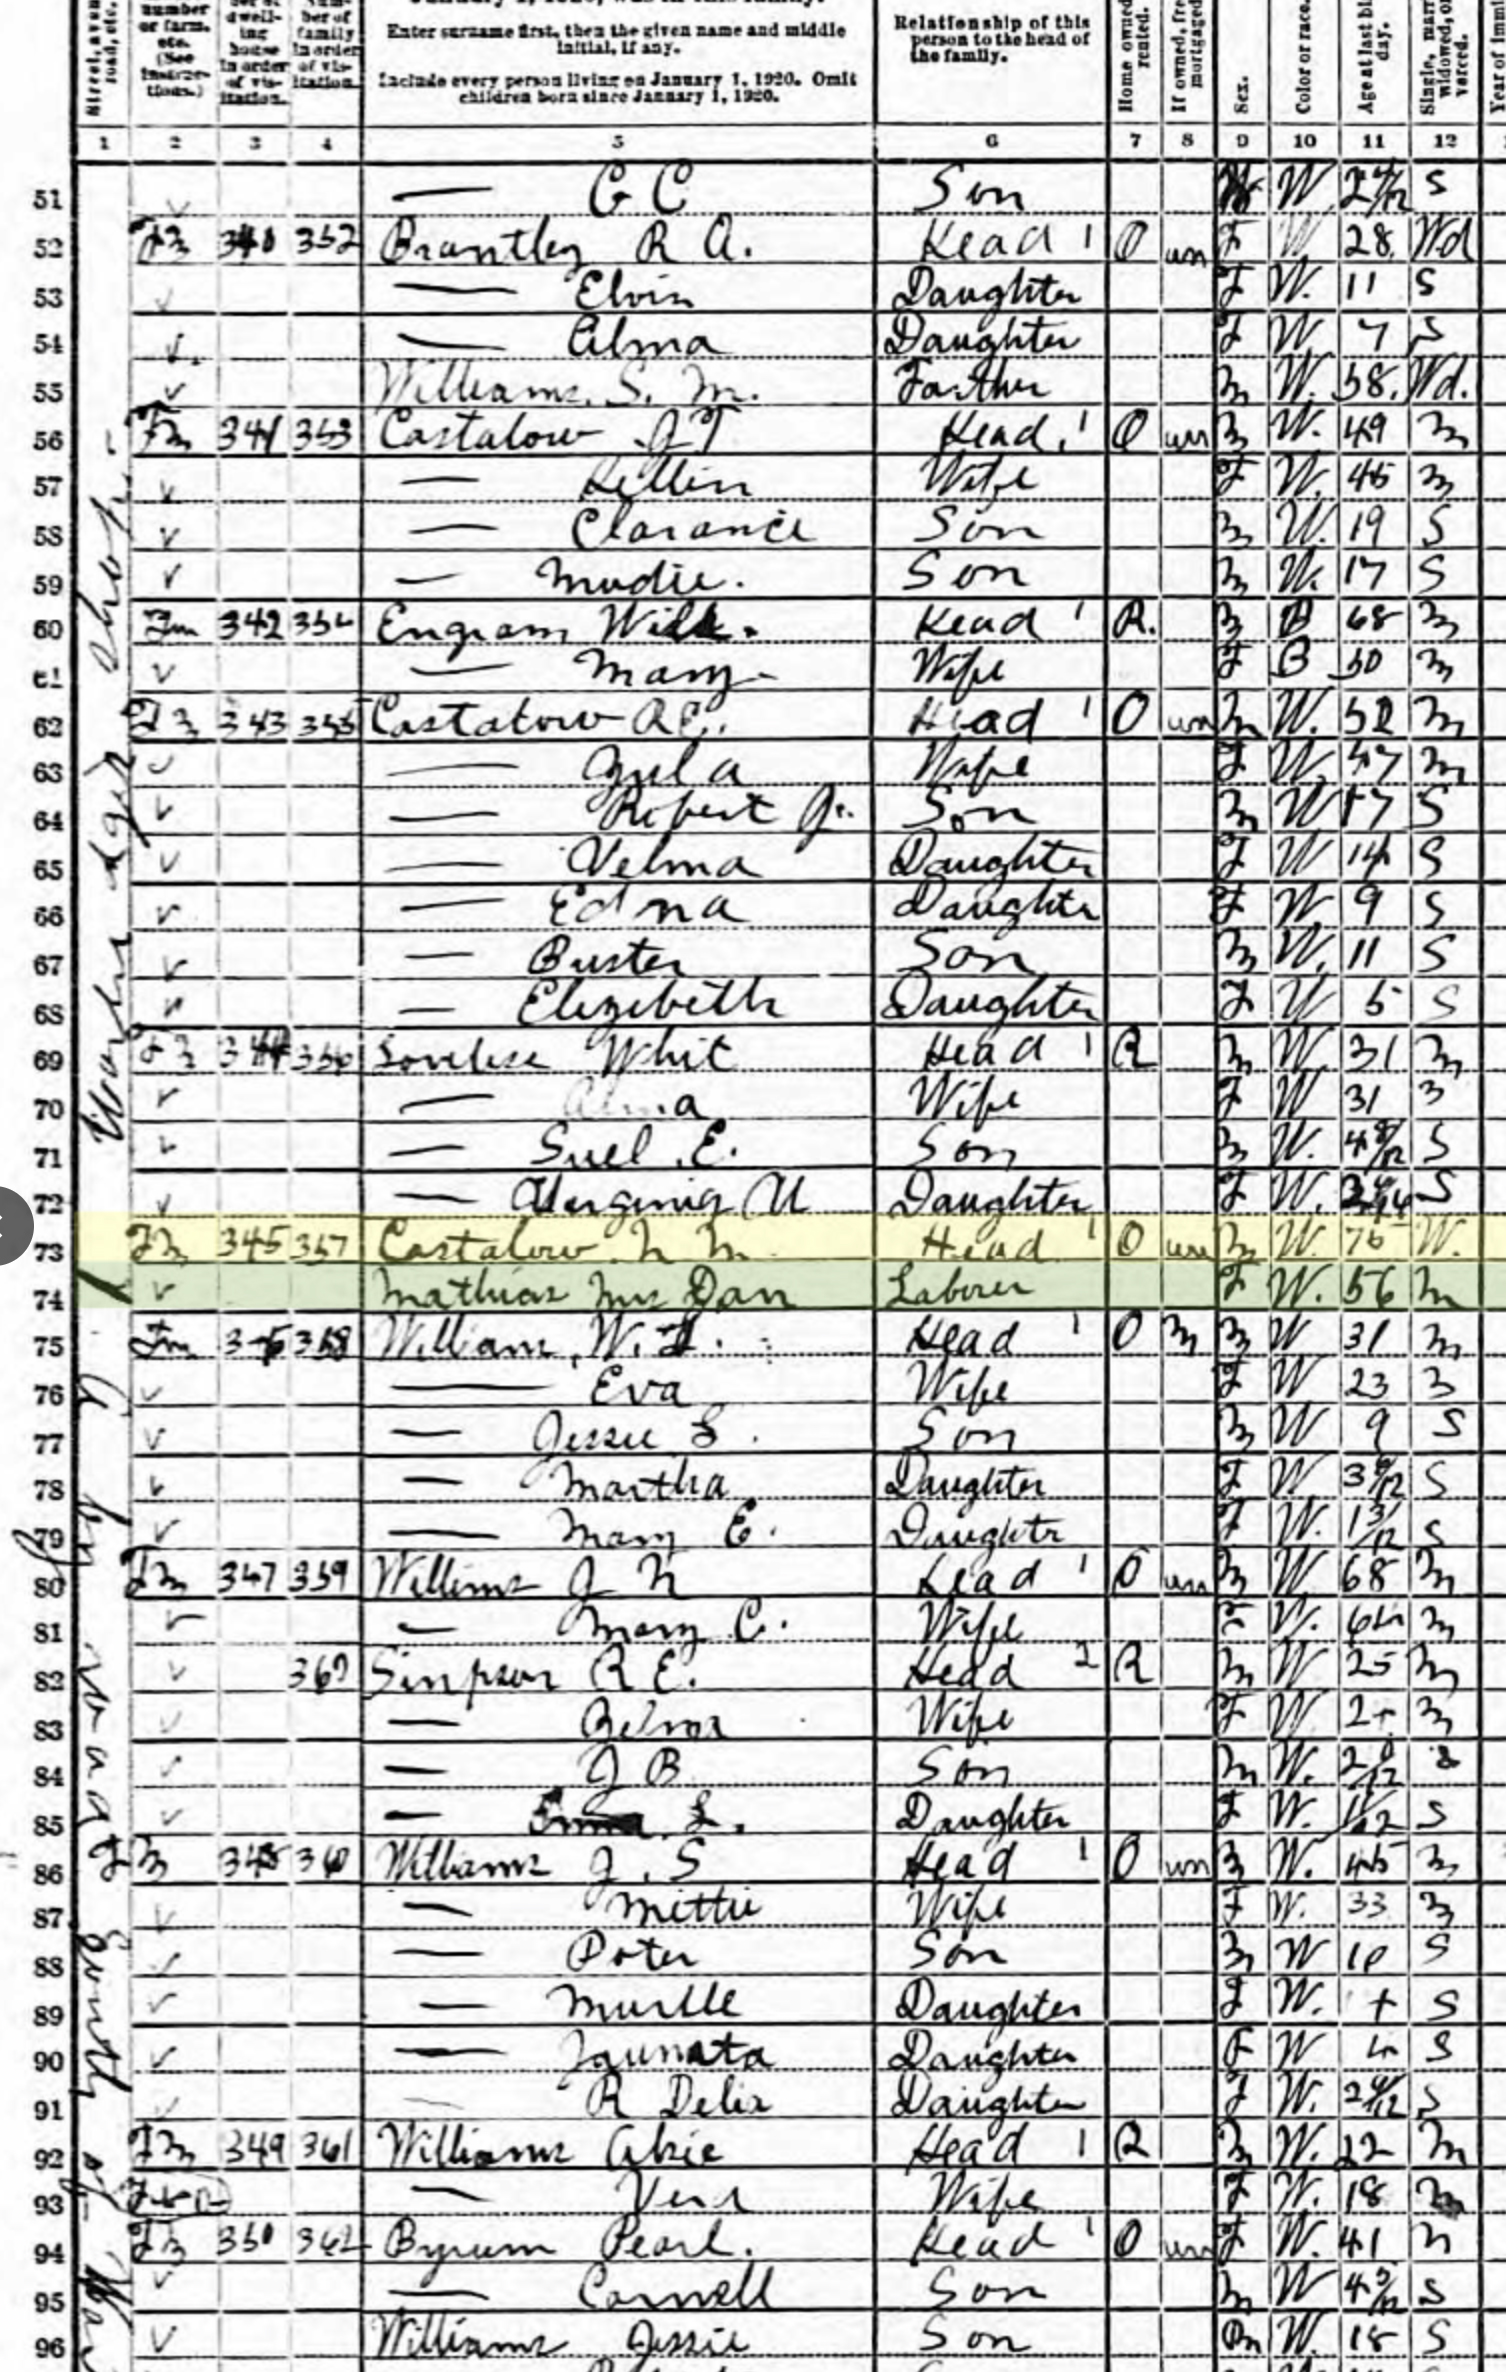 Street, avenue, road, etc.
number or farm, etc. (See instructions.)
ber of dwelling house in order of visitation.
Number of family in order of visitation.
Enter surname first, then the given name and middle initial, if any.
Include every person living on January 1, 1920. Omit children born since January 1, 1920.
Relationship of this person to the head of the family.
Home owned
rented.
If owned, fre
mortgaged
Sex.
Color or race.
Age at last bi
day.
Single, marr
widowed, or
vorced.
Year of immi
1 2 3 4 5 6 7 8 9 10 11 12
51 — C C Son W 2 S
52 Fm 340 352 Brantley R A. Head 1 O un F W 28 Wd
53 — Elvin Daughter F W. 11 S
54 — Alma Daughter F W 7 S
55 Williams. S. M. Farther M W. 58. Wd.
56 Fm 341 353 Castalow J T Head. 1 O un M W. 49 M
57 — Wife F W. M
58 — Clarance Son M W. 19 S
59 — Mudie. Son M W. 17 S
60 Fm 342 354 Engram Will. Head 1 R. M B 68 M
61 — Mary Wife F B 50 M
62 Fm 343 355 Castalow R E. Head 1 O un M W. 52 M
63 — Zula Wife F W. 47 M
64 — Robert Jr. Son M W 17 S
65 — Velma Daughter F W 14 S
66 — Edna Daughter F W 9 S
67 — Buster Son M W. 11 S
68 — Elizebeth Daughter F W 5 S
69 Fm 344 356 Lovelese Whit Head 1 R M W. 31 M
70 — Alma Wife F W 31 M
71 — Suel E. Son M W. 4 8/12 S
72 — Daughter F W. S
73 Fm 345 357 Castalow N M Head 1 O un M W. 76 W.
74 Mathias Mrs Dan Laborer F W. 56 M
75 Fm 346 358 William, W. Head 1 O M M W 31 M
76 — Eva Wife F W 23 M
77 — Jessie L. Son M W 9 S
78 — Martha Daughter F W S
79 — Mary E. Daughtr F W. S
80 Fm 347 359 Willims J N Head 1 O un M W 68 M
81 — Mary C. Wife F W. 64 M
82 Simpson R E. Head 2 R M W 25 M
83 — Wife F W M
84 — J B Son M W.
85 — L. Daughter F W. S
86 348 360 Williams J. S Head 1 O un M W. 45 M
87 — Mittie Wife F W. 33 M
88 — Poter Son M W 10 S
89 — Murlle Daughter F W. S
90 — Jaunata Daughter F W 4 S
91 R Delia Daughter F W. S
92 Fm 349 361 Williams Head 1 R M W. 22 M
93 — Vera Wife F W. 18 M
94 Fm 350 362 Byrum Pearl. Head 1 O un F W. 41
95 — Cornell Son M W S
96 Williams Jessie Son M W. 18 S